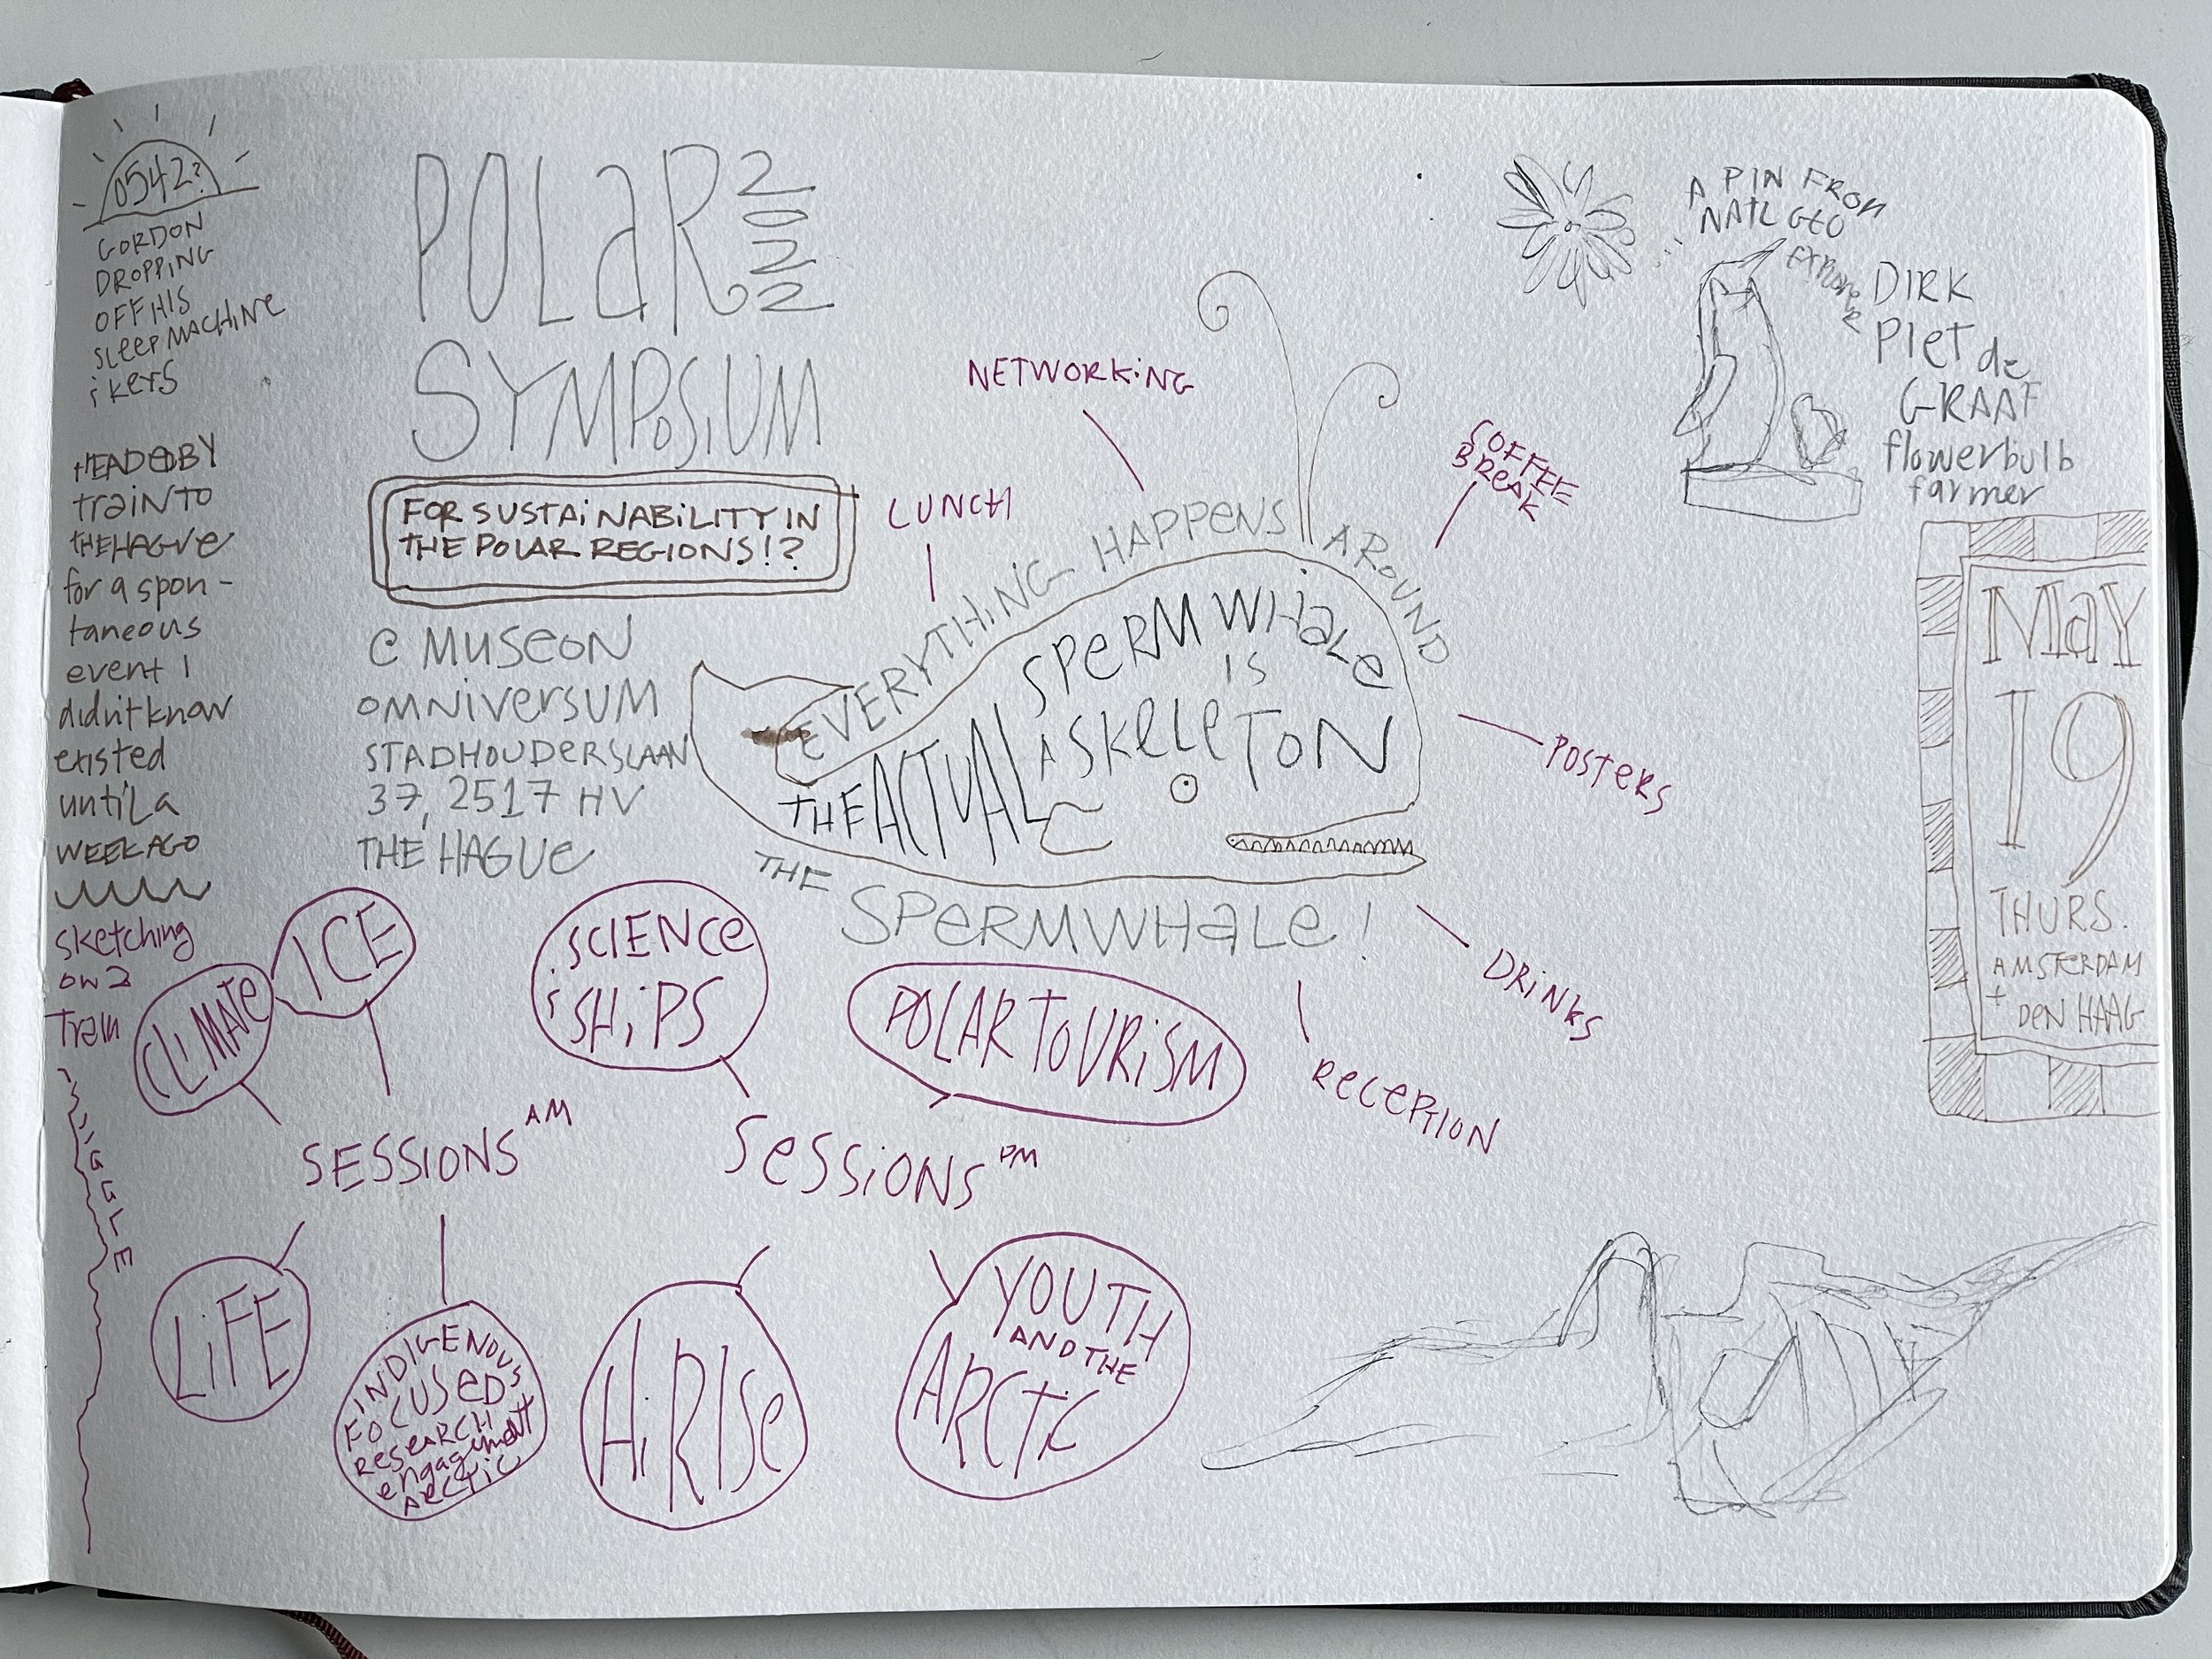 0542?
GORDON
DROPPING
OFF HIS
SLEEP MACHINE
HEADED BY
train TO
THE HAGUE
for a spon-
taneous
event I
didn't know
existed
until a
WEEK AGO
sketching
on 2
Tram
WIGGLE
POLAR 2022
SYMPOSIUM
FOR SUSTAINABILITY IN
THE POLAR REGIONS!?
@ MUSEON
OMNIVERSUM
STADHOUDERSLAAN
37, 2517 HV
THE HAGUE
NETWORKING
LUNCH
COFFEE
BREAK
POSTERS
DRINKS
RECEPTION
EVERYTHING HAPPENS AROUND
THE
SPERMWHALE!
THE ACTUAL
SPERM WHALE
IS
A SKELETON
A PIN FROM
NATL GEO
EXPLORER
DIRK
PIET de
GRAAF
flowerbulb
farmer
MAY
19
THURS.
AMSTERDAM
+
DEN HAAG
CLIMATE
ICE
SESSIONS AM
LIFE
INDIGENOUS
FOCUSED
RESEARCH
engagement
ARCTIC
SCIENCE
SHIPS
POLAR TOURISM
SESSIONS PM
HiRISE
YOUTH
AND THE
ARCTIC